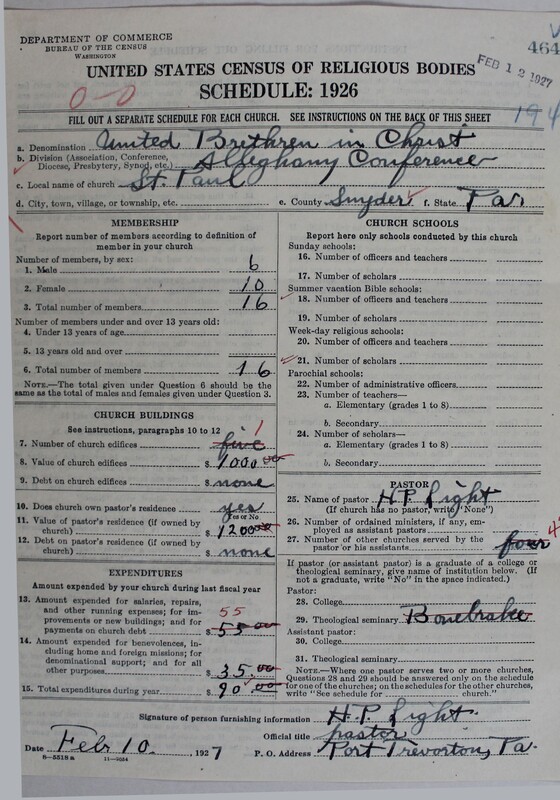 DEPARTMENT OF COMMERCE
BUREAU OF THE CENSUS
WASHINGTON
464
FEB 12 1927
UNITED STATES CENSUS OF RELIGIOUS BODIES
SCHEDULE: 1926
0-0
194
FILL OUT A SEPARATE SCHEDULE FOR EACH CHURCH. SEE INSTRUCTIONS ON THE BACK OF THIS SHEET
a. Denomination United Brethren in Christ
b. Division (Association, Conference, Diocese, Presbytery, Synod, etc.) Alleghany Conference
c. Local name of church St. Paul
d. City, town, village, or township, etc. e. County Snyder f. State Pa.
MEMBERSHIP
Report number of members according to definition of
member in your church
Number of members, by sex:
1. Male 6
2. Female 10
3. Total number of members 16
Number of members under and over 13 years old:
4. Under 13 years of age
5. 13 years old and over
6. Total number of members 16
NOTE.—The total given under Question 6 should be the
same as the total of males and females given under Question 3.
CHURCH BUILDINGS
See instructions, paragraphs 10 to 12
7. Number of church edifices five 1
8. Value of church edifices $ 1000 00
9. Debt on church edifices $ none
10. Does church own pastor's residence yes
Yes or No
11. Value of pastor's residence (if owned by
church) $ 1200 00
12. Debt on pastor's residence (if owned by
church) $ none
EXPENDITURES
Amount expended by your church during last fiscal year
13. Amount expended for salaries, repairs,
and other running expenses; for im-
provements or new buildings; and for
payments on church debt $ 55 00 55
14. Amount expended for benevolences,
including home and foreign missions; for
denominational support; and for all
other purposes $ 35.00
15. Total expenditures during year $ 90 00
CHURCH SCHOOLS
Report here only schools conducted by this church
Sunday schools:
16. Number of officers and teachers
17. Number of scholars
Summer vacation Bible schools:
18. Number of officers and teachers
19. Number of scholars
Week-day religious schools:
20. Number of officers and teachers
21. Number of scholars
Parochial schools:
22. Number of administrative officers
23. Number of teachers—
a. Elementary (grades 1 to 8)
b. Secondary
24. Number of scholars—
a. Elementary (grades 1 to 8)
b. Secondary
PASTOR
25. Name of pastor H.P. Light
(If church has no pastor, write "None")
26. Number of ordained ministers, if any, em-
ployed as assistant pastors
27. Number of other churches served by the
pastor or his assistants four 4
If pastor (or assistant pastor) is a graduate of a college or
theological seminary, give name of institution below. (If
not a graduate, write "No" in the space indicated.)
Pastor:
28. College
29. Theological seminary Bonebrake
Assistant pastor:
30. College
31. Theological seminary
NOTE.—Where one pastor serves two or more churches,
Questions 28 and 29 should be answered only on the schedule
for one of the churches; on the schedules for the other churches,
write "See schedule for church."
Signature of person furnishing information H.P. Light
Official title pastor
Date Feb 10. 1927 P. O. Address Port Trevorton, Pa.
8-5518a 11-9034